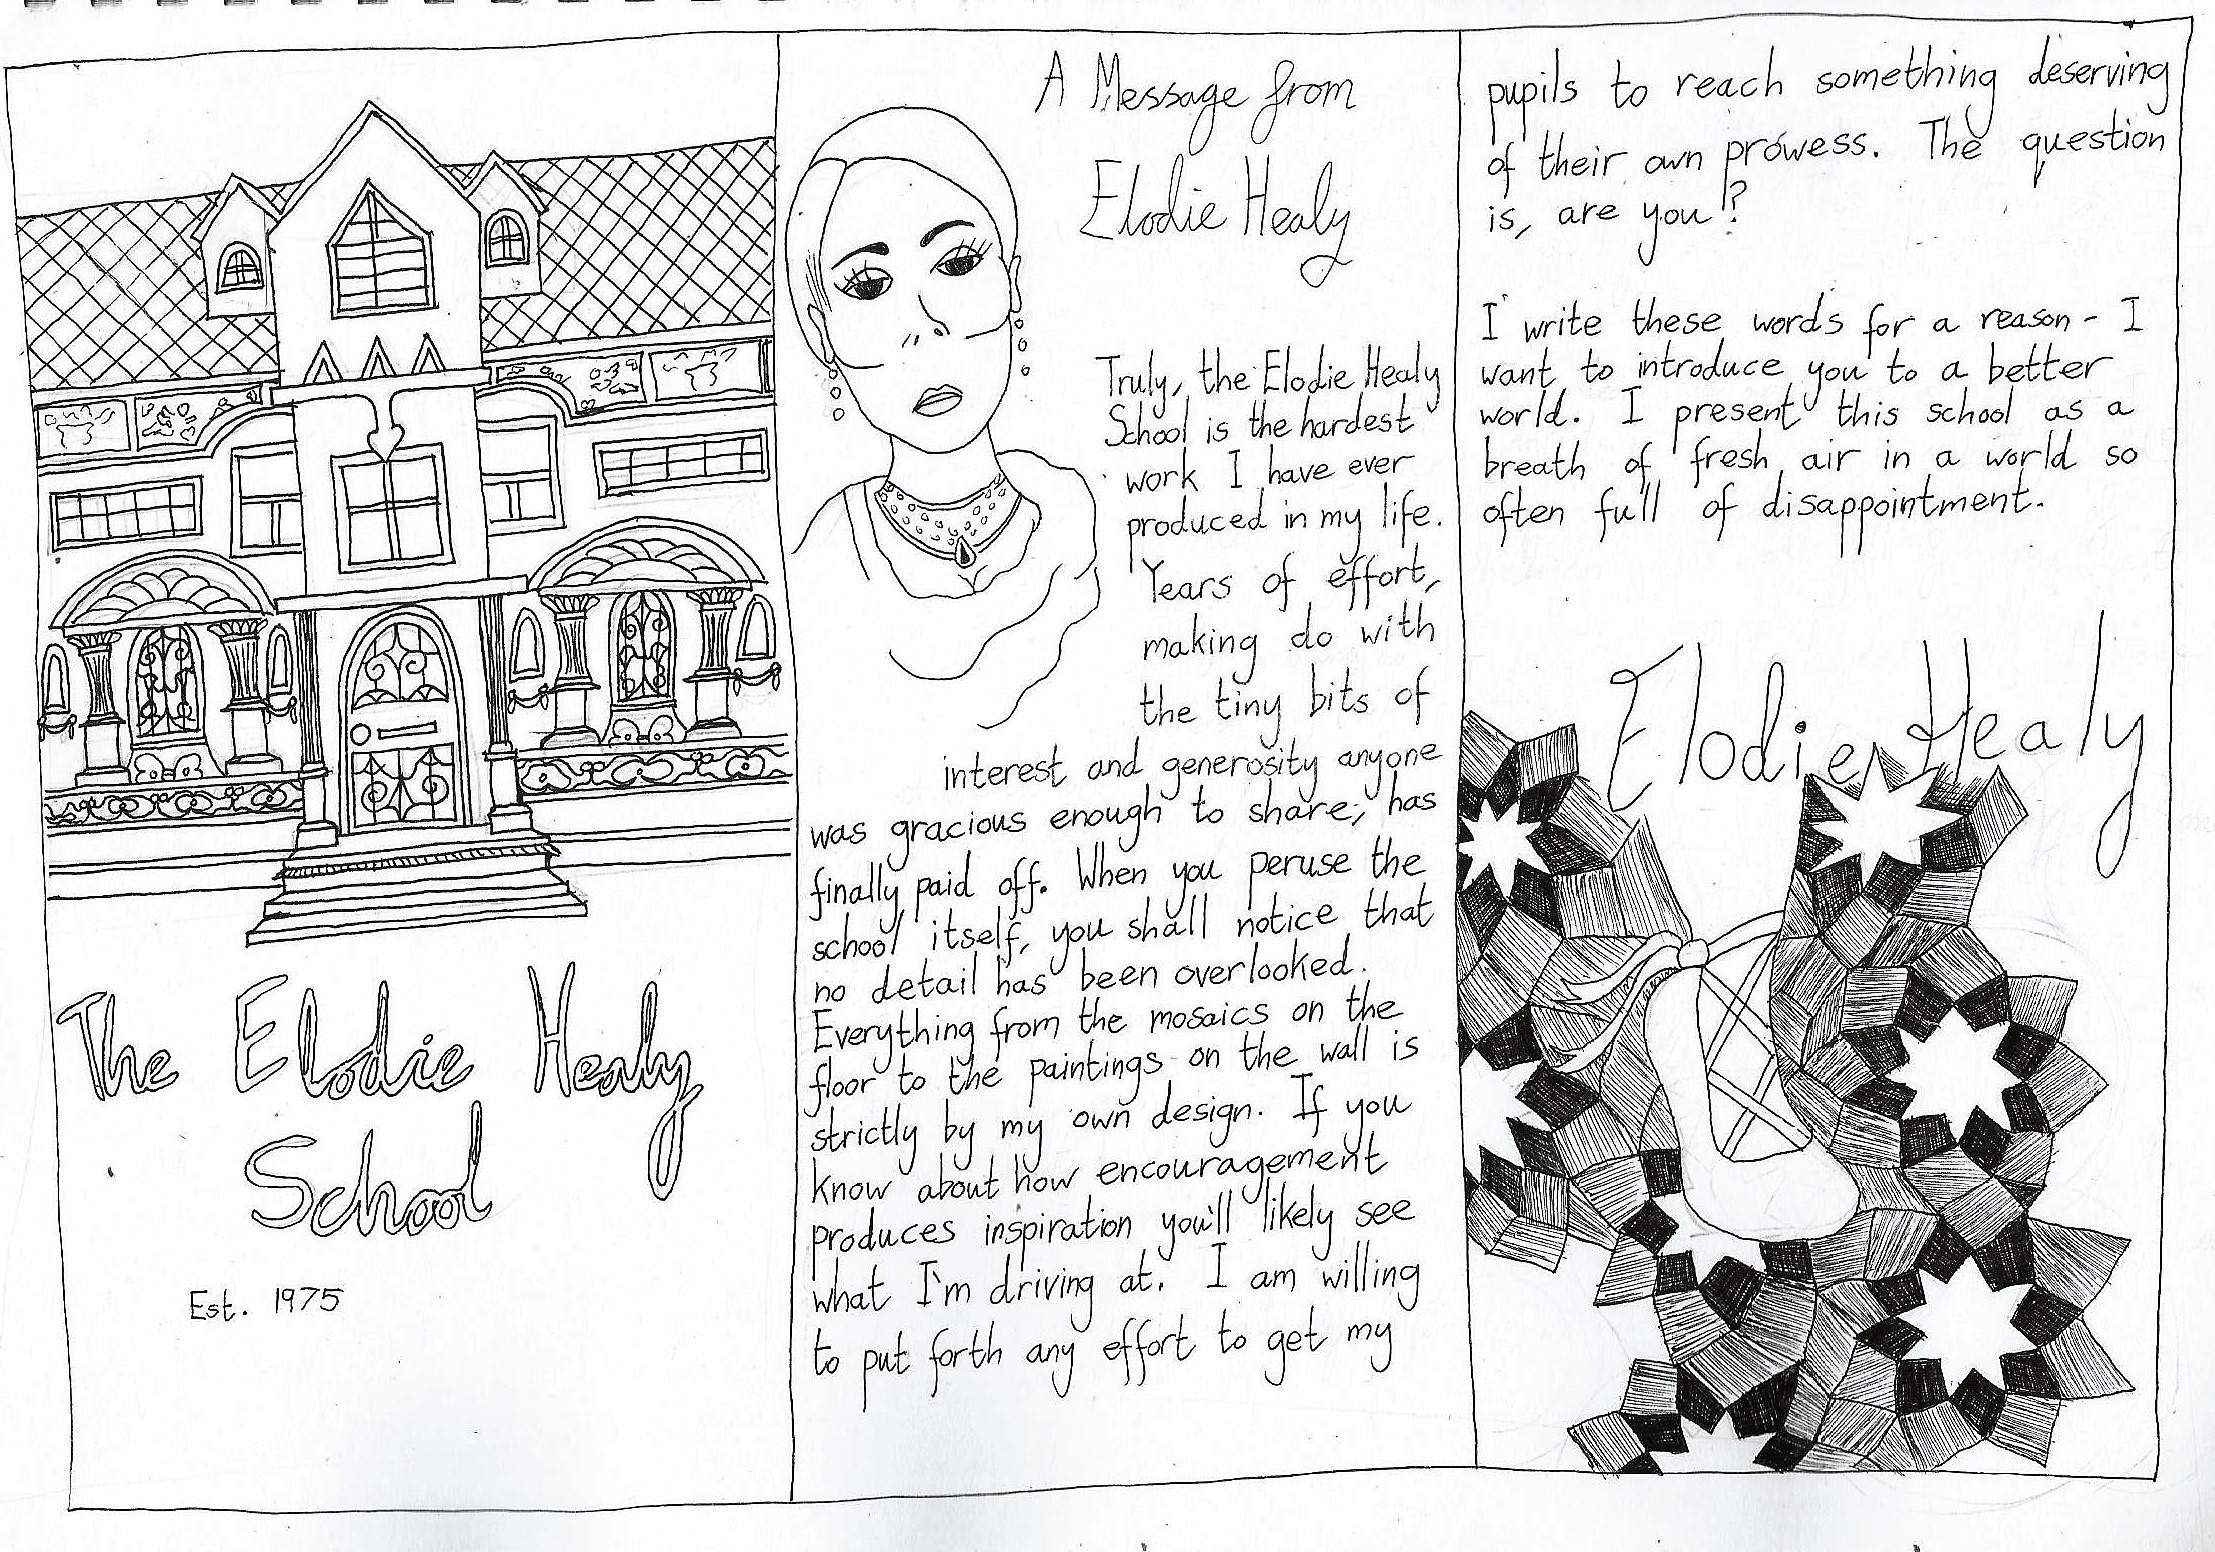 The Elodie Healy
School
Est. 1975
A Message from
Elodie Healy
Truly, the Elodie Healy
School is the hardest
work I have ever
produced in my life.
Years of effort,
making do with
the tiny bits of
interest and generosity anyone
was gracious enough to share, has
finally paid off. When you peruse the
school itself, you shall notice that
no detail has been overlooked.
Everything from the mosaics on the
floor to the paintings on the wall is
strictly by my own design. If you
know about how encouragement
produces inspiration you'll likely see
what I'm driving at. I am willing
to put forth any effort to get my
pupils to reach something deserving
of their own prowess. The question
is, are you?
I write these words for a reason - I
want to introduce you to a better
world. I present this school as a
breath of fresh air in a world so
often full of disappointment.
Elodie Healy